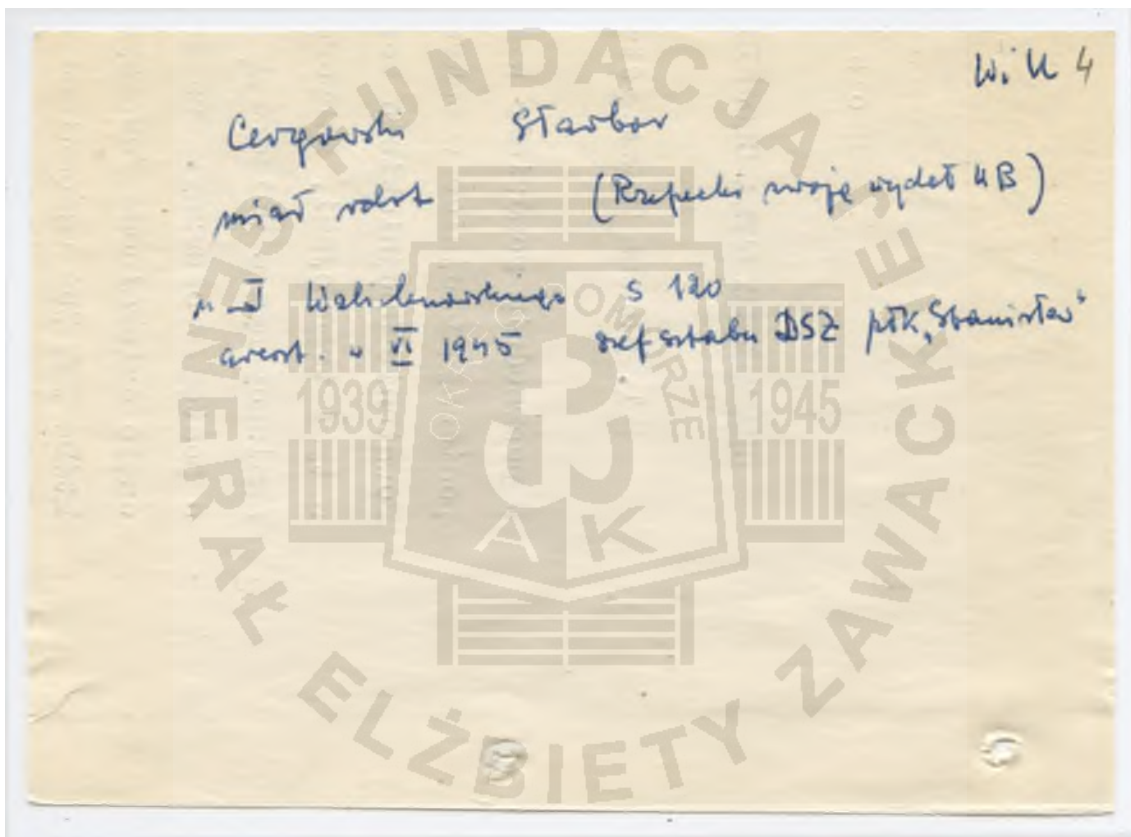 W. U 4
Cergowski Skarbor
miał robot (Rzepecki swoje wydał UB)
u J Walichnowskiego s 120
areszt. w VI 1945 szef sztabu DSZ płk „Stanisław"
FUNDACJA GENERAŁ ELŻBIETY ZAWACKIEJ
1939 1945
OKRĘG POMORZE
AK